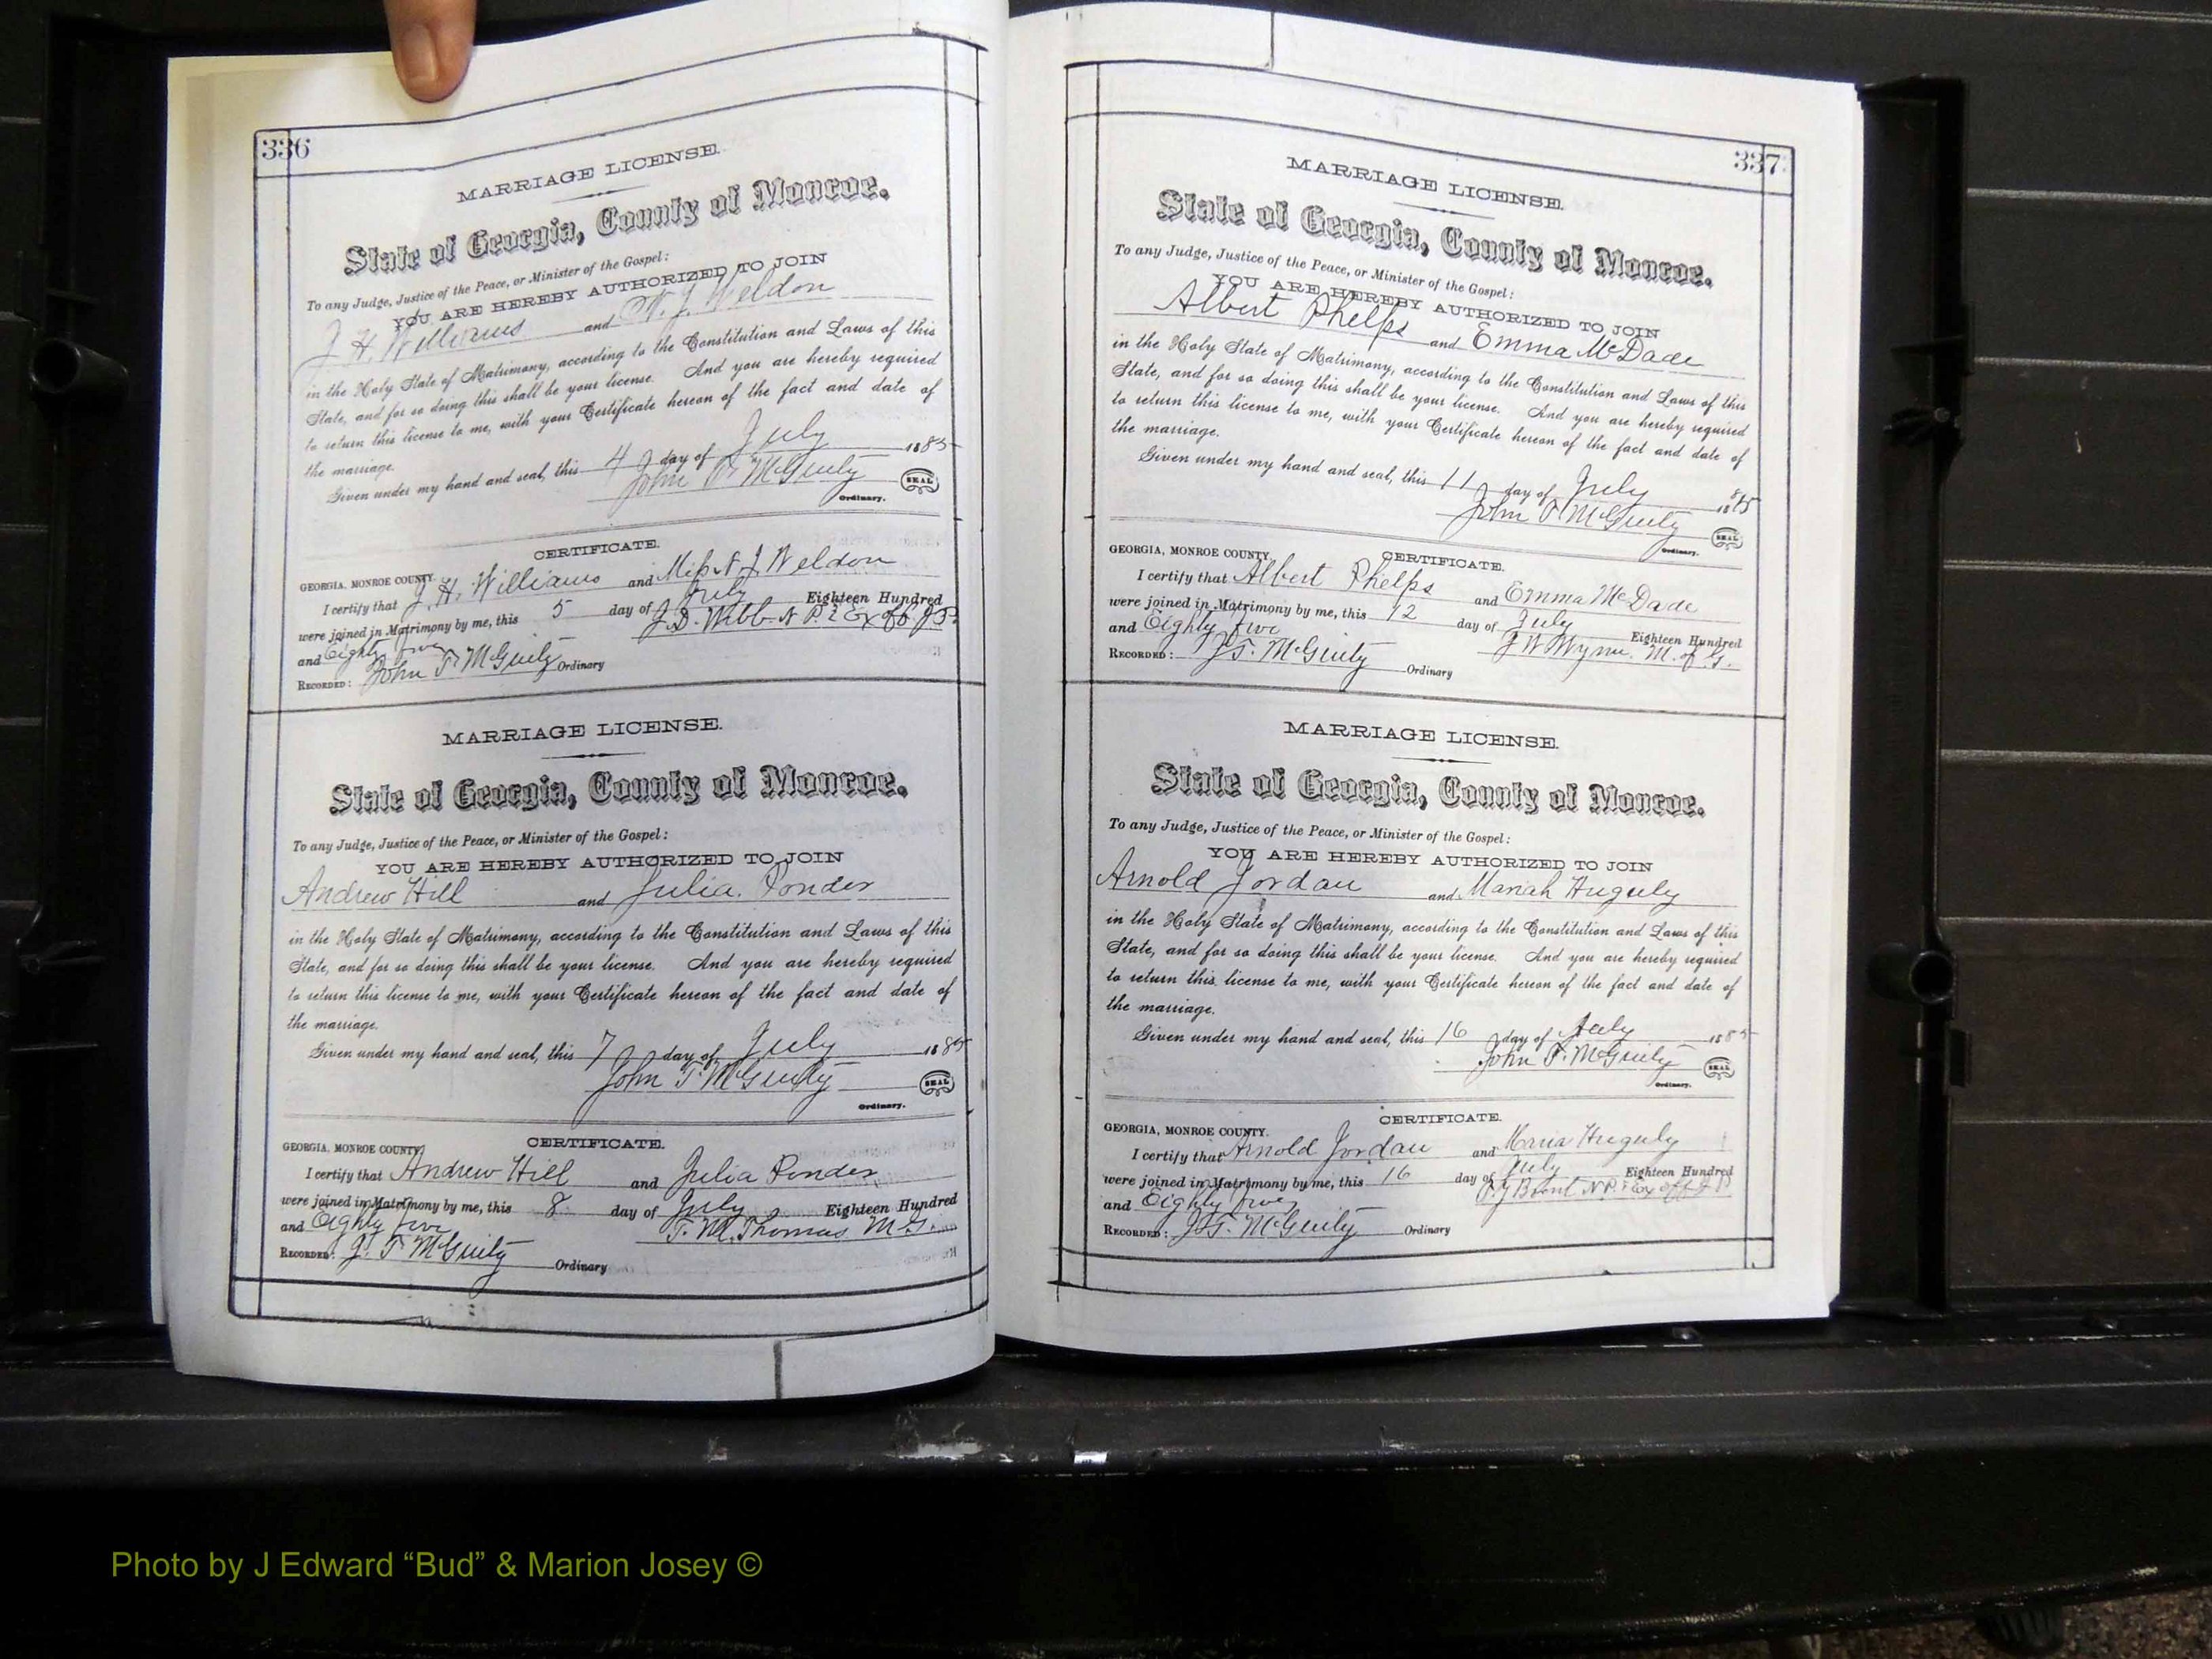 336
MARRIAGE LICENSE.
State of Georgia, County of Monroe.
To any Judge, Justice of the Peace, or Minister of the Gospel:
YOU ARE HEREBY AUTHORIZED TO JOIN
J H. Williams and N. J. Weldon
in the Holy State of Matrimony, according to the Constitution and Laws of this
State, and for so doing this shall be your license. And you are hereby required
to return this license to me, with your Certificate hereon of the fact and date of
the marriage.
Given under my hand and seal, this 4 day of July 1885
John T. McGinty SEAL
Ordinary.
CERTIFICATE.
GEORGIA, MONROE COUNTY.
I certify that J. H. Williams and Miss N J Weldon
were joined in Matrimony by me, this 5 day of July Eighteen Hundred
and Eighty five J. D. Webb N P & Ex off J P.
RECORDED: John T. McGinty Ordinary
MARRIAGE LICENSE.
State of Georgia, County of Monroe.
To any Judge, Justice of the Peace, or Minister of the Gospel:
YOU ARE HEREBY AUTHORIZED TO JOIN
Andrew Hill and Julia. Ponder
in the Holy State of Matrimony, according to the Constitution and Laws of this
State, and for so doing this shall be your license. And you are hereby required
to return this license to me, with your Certificate hereon of the fact and date of
the marriage.
Given under my hand and seal, this 7 day of July 1885
John T. McGinty SEAL
Ordinary.
CERTIFICATE.
GEORGIA, MONROE COUNTY.
I certify that Andrew Hill and Julia Ponder
were joined in Matrimony by me, this 8 day of July Eighteen Hundred
and Eighty five T. M. Thomas M. G.
RECORDED: J. T. McGinty Ordinary
337
MARRIAGE LICENSE.
State of Georgia, County of Monroe.
To any Judge, Justice of the Peace, or Minister of the Gospel:
YOU ARE HEREBY AUTHORIZED TO JOIN
Albert Phelps and Emma McDade
in the Holy State of Matrimony, according to the Constitution and Laws of this
State, and for so doing this shall be your license. And you are hereby required
to return this license to me, with your Certificate hereon of the fact and date of
the marriage.
Given under my hand and seal, this 11 day of July 1885
John T. McGinty SEAL
Ordinary.
CERTIFICATE.
GEORGIA, MONROE COUNTY.
I certify that Albert Phelps and Emma McDade
were joined in Matrimony by me, this 12 day of July Eighteen Hundred
and Eighty five J W Wynn. M. of G.
RECORDED: J. T. McGinty Ordinary
MARRIAGE LICENSE.
State of Georgia, County of Monroe.
To any Judge, Justice of the Peace, or Minister of the Gospel:
YOU ARE HEREBY AUTHORIZED TO JOIN
Arnold Jordan and Mariah Huguly
in the Holy State of Matrimony, according to the Constitution and Laws of this
State, and for so doing this shall be your license. And you are hereby required
to return this license to me, with your Certificate hereon of the fact and date of
the marriage.
Given under my hand and seal, this 16 day of July 1885
John T. McGinty SEAL
Ordinary.
CERTIFICATE.
GEORGIA, MONROE COUNTY.
I certify that Arnold Jordan and Maria Huguly
were joined in Matrimony by me, this 16 day of July Eighteen Hundred
and Eighty five N P & Ex off J P
RECORDED: J. T. McGinty Ordinary
Photo by J Edward “Bud” & Marion Josey ©